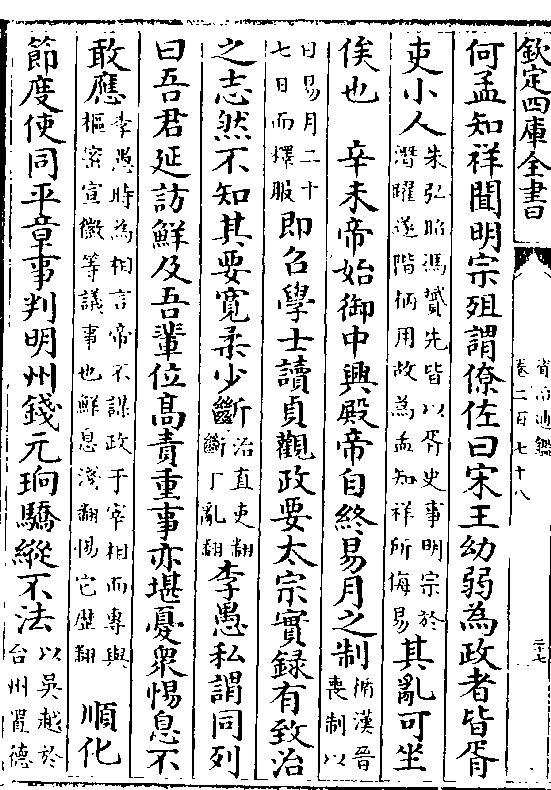 欽定四庫全書
資治通鑑
卷二百七十八
二十七
何孟知祥聞明宗殂謂僚佐曰宋王幼弱為政者皆胥
吏小人朱弘昭馮贇先皆以胥史事明宗於
潛躍遂階柄用故為孟知祥所侮易其亂可坐
俟也　辛未帝始御中興殿帝自終易月之制循漢晉
喪制以
日易月二十
七日而釋服即召學士讀貞觀政要太宗實録有致治
之志然不知其要寛柔少斷治直吏翻
斷丁亂翻李愚私謂同列
曰吾君延訪鮮及吾輩位髙責重事亦堪憂衆惕息不
敢應李愚時為相言帝不謀政于宰相而專與
樞宻宣徽等議事也鮮息淺翻惕它歴翻　順化
節度使同平章事判明州錢元珦驕縱不法以吳越於
台州置德